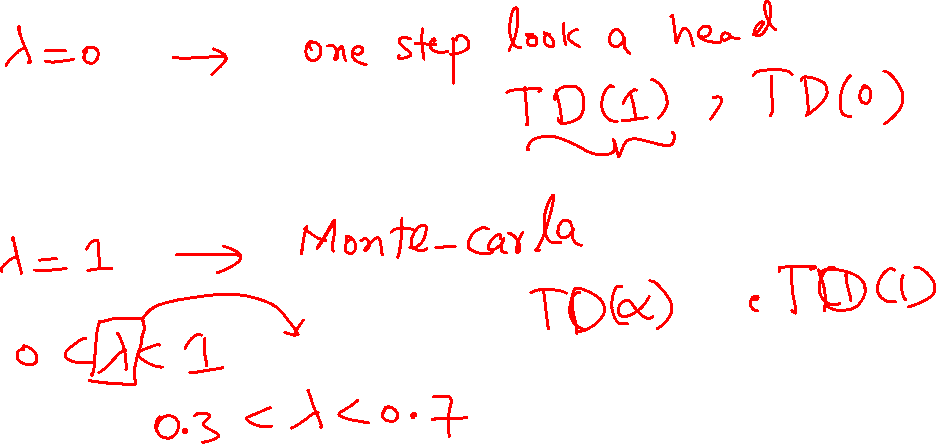 λ=0 → one step look a head
TD(1) , TD(0)
λ=1 → Monte-carla
TD(∝) , TD(1)
0 < λ < 1
0.3 < λ < 0.7